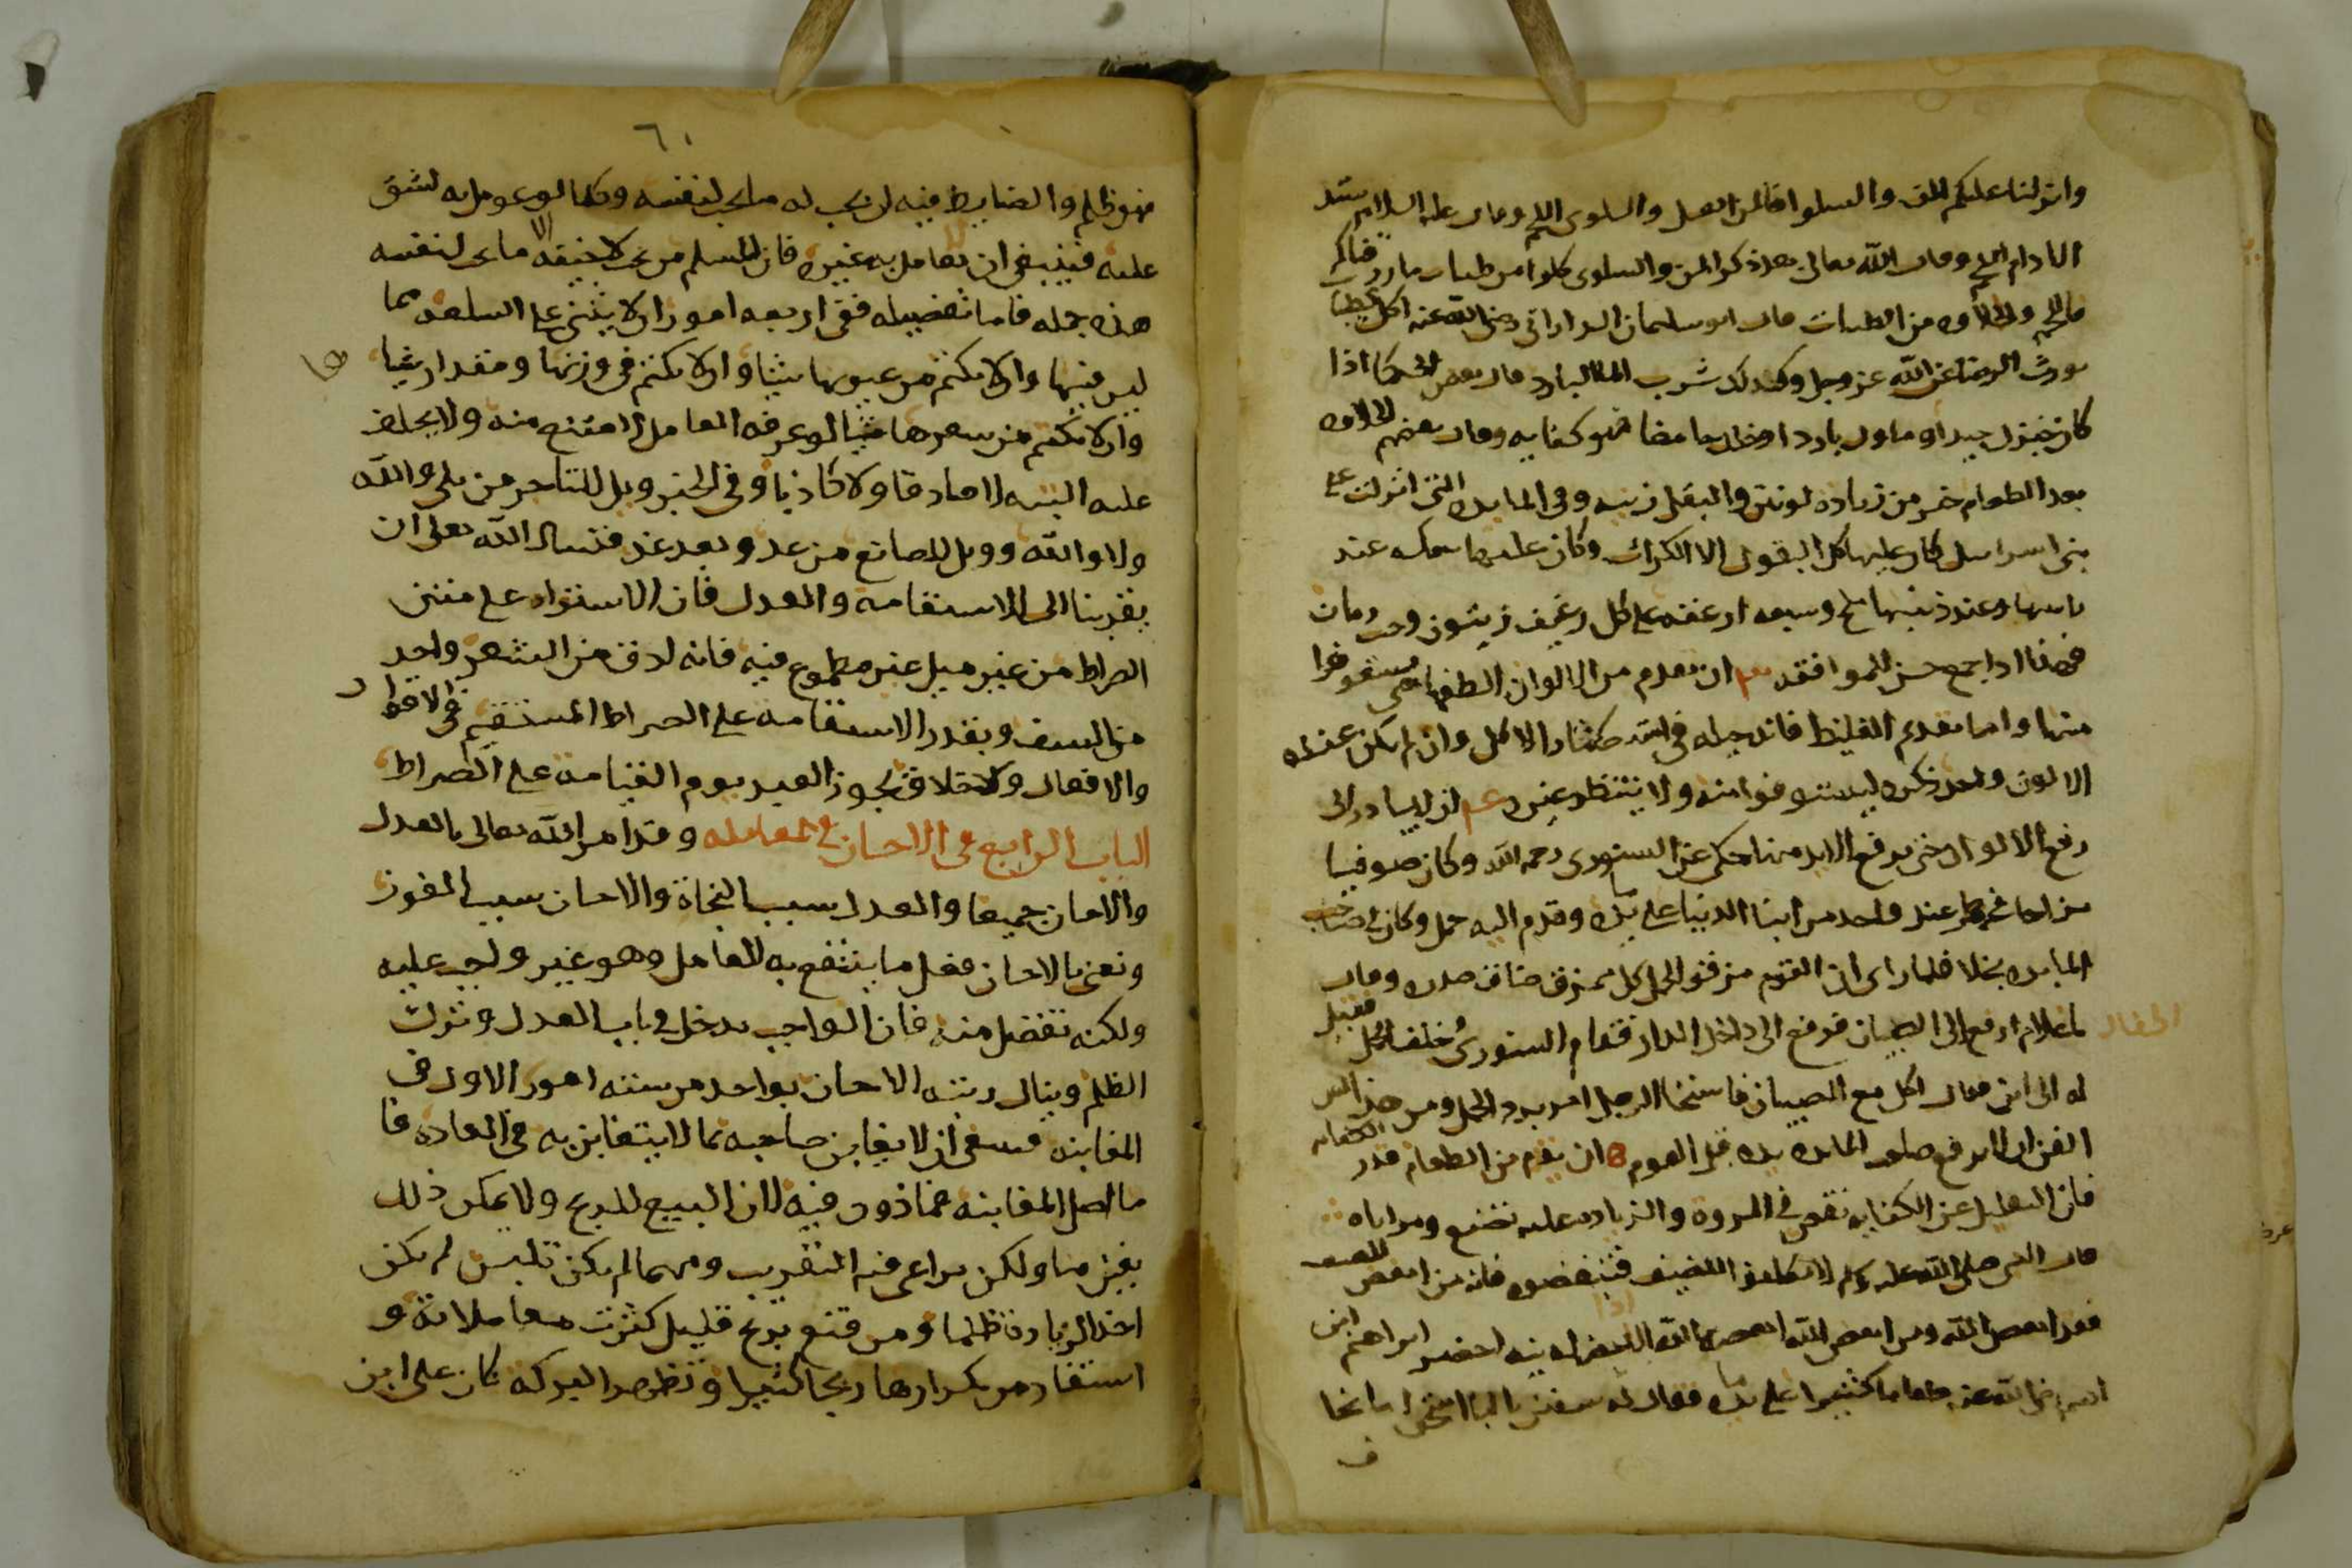 وانزلنا عليكم المن والسلوا فالمن العسل والسلوى اللحم وقال عليه السلام سيد
الادام اللحم وقال الله تعالى بعد ذكر المن والسلوى كلوا من طيبات ما رزقناكم
فاللحم والحلاوه من الطيبات قال ابو سليمان الداراني رضي الله عنه اكل الطيبات
يورث الرضا عن الله عز وجل وكذلك شرب الما البارد قال بعض الحكما اذا
كان خبزك جيدا وماوك باردا وخلك حامضا فهو كفايه وقال بعضهم الحلاوه
بعد الطعام خير من زياده لونين والبقل زينه وفي المايده التي انزلت على
بني اسرايل كان عليها كل البقول الا الكراث وكان عليها سمكه عند
راسها وعند ذنبها ملح وسبعه ارغفه على كل رغيف زيتون وحب رمان
فهذا اذا جمع حسن للموافقه ان يقدم من الالوان الطفها حتى يستوفوا
منها واما تقديم الغليظ فانه حيله في استكثار الاكل وان لم يكن عنده
الا لون واحد ذكره ليستوفوا منه ولا ينتظر غيره ان لا يبادر الى
رفع الالوان حتى يرفع الايدي منها حكي عن الستوري رحمه الله وكان صوفيا
مزاحا فحضر عند واحد من ابنا الدنيا على مايده وقدم اليه حمل وكان في صاحب
المايده بخلا فلما راى ان القوم مزقوا الحمل كل ممزق ضاق صدره وقال
يا غلام ارفع الى الصبيان فرفع الى داخل الدار فقام الستوري خلف الحمل فقيل
له الى اين فقال اكل مع الصبيان فاستحيا الرجل امر برد الحمل ومن هذا
الفن ان لا يرفع صاحب المايده يده قبل القوم ان يقدم من الطعام قدر الكفايه
فان التقليل عن الكفايه نقص في المروه والزياده عليه تصنع ومراياه
قال النبي صلى الله عليه وسلم لا تكلفوا للضيف فتبغضوه فانه من ابغض الضيف
فقد ابغض الله ومن ابغض الله ابغضه الله احضر ابراهيم ابن
ادهم رضي الله عنه طعاما كثيرا على مايده فقال له سفين يا ابا اسحق اما تخاف
٦١
فهو ظلم والضابط فيه ان يحب له ما يحب لنفسه وكما لو عومل به لشق
عليه فينبغي ان لا يعامل به غيره فان المسلم من يحب لاخيه ما يحب لنفسه
هذه جمله فاما تفضيله ففي اربعه امور ان لا يثني على السلعه بما
ليس فيها وان لا يكتم من عيوبها شيئا وان لا يكتم في وزنها ومقدارها شيا
وان لا يكتم من سعرها شيا لو عرفه المعامل لامتنع منه ولا يحلف
عليه البته لا صادقا ولا كاذبا وفي الخبر ويل للتاجر من بلى والله
ولا والله وويل للصانع من غد وبعد غد فنسال الله تعلى ان
يقربنا الى الاستقامه والعدل فان الاستواء على متن
الصراط من غير ميل غير مطموع فيه فانه ادق من الشعر واحد
من السيف وبقدر الاستقامه على الصراط المستقيم في الاقوال
والافعال والاخلاق يجوز العبد يوم القيامه على الصراط
الباب الرابع في الاحسان في المعامله وقد امر الله تعالى بالعدل
والاحسان جميعا والعدل سبب النجاة والاحسان سبب الفوز
ونعني بالاحسان فعل ما ينتفع به المعامل وهو غير واجب عليه
ولكنه تفضل منه فان الواجب يدخل في باب العدل وترك
الظلم وينال رتبه الاحسان بواحد من سته امور الاول في
المغابنه فينبغي ان لا يغابن صاحبه بما لا يتغابن به في العاده فا
ما اصل المغابنه فماذون فيه لان البيع للربح ولا يمكن ذلك
بغبن ما ولكن يراعي فيه التقريب ومهما لم يكن تلبيس لم يكن
اخذ الزيادة ظلما ومن قنع بربح قليل كثرت معاملاته و
استفاد من تكرارها ربحا كثيرا وتظهر البركه كان علي ابن